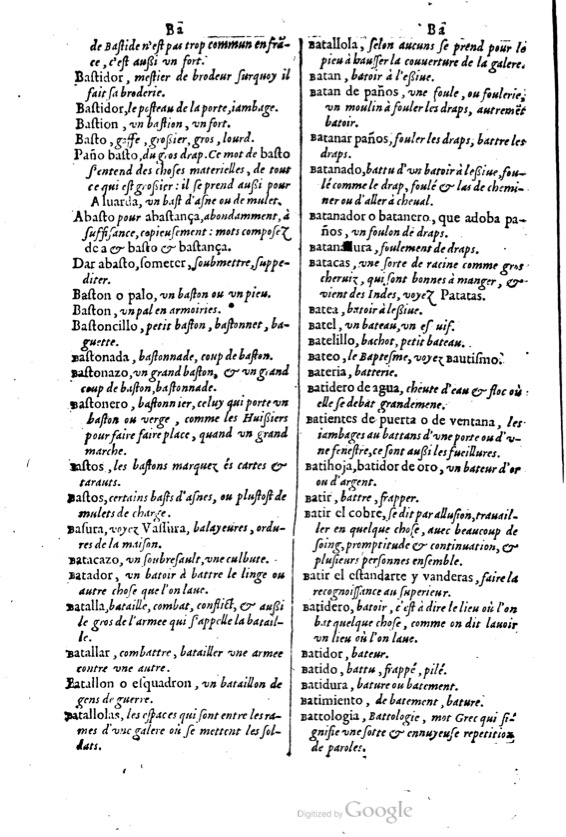 Ba
de Bastide n'est pas trop commun en frã-
ce, c'est außi vn fort.
Bastidor, mestier de brodeur surquoy il
fait sa broderie.
Bastidor, le posteau de la porte, iambage.
Bastion, vn bastion, vn fort.
Basto, gosse, großier, gros, lourd.
Paño basto, du gros drap. Ce mot de basto
s'entend des choses materielles, de tout
ce qui est großier : il se prend außi pour
Aluarda, vn bast d'asne ou de mulet.
Abasto pour abastança, abondamment, à
suffisance, copieusement : mots composez
de a & basto & bastança.
Dar abasto, someter, soubmettre, suppe-
diter.
Baston o palo, vn baston ou vn pieu.
Baston, vn pal en armoiries.
Bastoncillo, petit baston, bastonnet, ba-
guette.
Bastonada, bastonnade, coup de baston.
Bastonazo, vn grand baston, & vn grand
coup de baston, bastonnade.
Bastonero, bastonnier, celuy qui porte vn
baston ou verge, comme les Huißiers
pour faire faire place, quand vn grand
marche.
Bastos, les bastons marquez és cartes &
tarauts.
Bastos, certains basts d'asnes, ou plustost de
mulets de charge.
Basura, voyez Vassura, balayeures, ordu-
res de la maison.
Batacazo, vn soubresault, vne culbute.
Batador, vn batoir à battre le linge ou
autre chose que l'on laue.
Batalla, bataille, combat, conflict, & außi
le gros de l'armee qui s'appelle la batail-
le.
Batallar, combattre, batailler vne armee
contre vne autre.
Batallon o esquadron, vn bataillon de
gens de guerre.
Batallolas, les espaces qui sont entre les ra-
mes d'vne galere où se mettent les sol-
dats.
Ba
Batallola, selon aucuns se prend pour le
pieu à hausser la couuerture de la galere.
Batan, batoir à l'eßiue.
Batan de paños, vne foule, ou foulerie,
vn moulin à fouler les draps, autremẽt
batoir.
Batanar paños, fouler les draps, battre les
draps.
Batanado, battu d'vn batoir à leßiue, fou-
lé comme le drap, foulé & las de chemi-
ner ou d'aller à cheual.
Batanador o batanero, que adoba pa-
ños, vn foulon de draps.
foulement de draps.
Batacas, vne sorte de racine comme gros
cheruiz, qui sont bonnes à manger, &
vient des Indes, voyez Patatas.
Batea, batoir à leßiue.
Batel, vn bateau, vn esquif.
Batelillo, bachot, petit bateau.
Bateo, le Baptesme, voyez Bautismo.
Bateria, batterie.
Batidero de agua, cheute d'eau & floc où
elle se debat grandement.
Batientes de puerta o de ventana, les
iambages au battans d'vne porte ou d'v-
ne fenestre, ce sont außi les fueillures.
Batihoja, batidor de oro, vn bateur d'or
ou d'argent.
Batir, battre, frapper.
Batir el cobre, se dit par allusion, trauail-
ler en quelque chose, auec beaucoup de
soing, promptitude & continuation, &
plusieurs personnes ensemble.
Batir el estandarte y vanderas, faire la
recognoissance au superieur.
Batidero, batoir, c'est à dire le lieu où l'on
bat quelque chose, comme on dit lauoir
vn lieu où l'on laue.
Batidor, bateur.
Batido, battu, frappé, pilé.
Batidura, bature ou batement.
Batimiento, de batement, bature.
Battologia, Battologie, mot Grec qui si-
gnifie vne sotte & ennuyeuse repetition
de paroles.
Digitized by Google